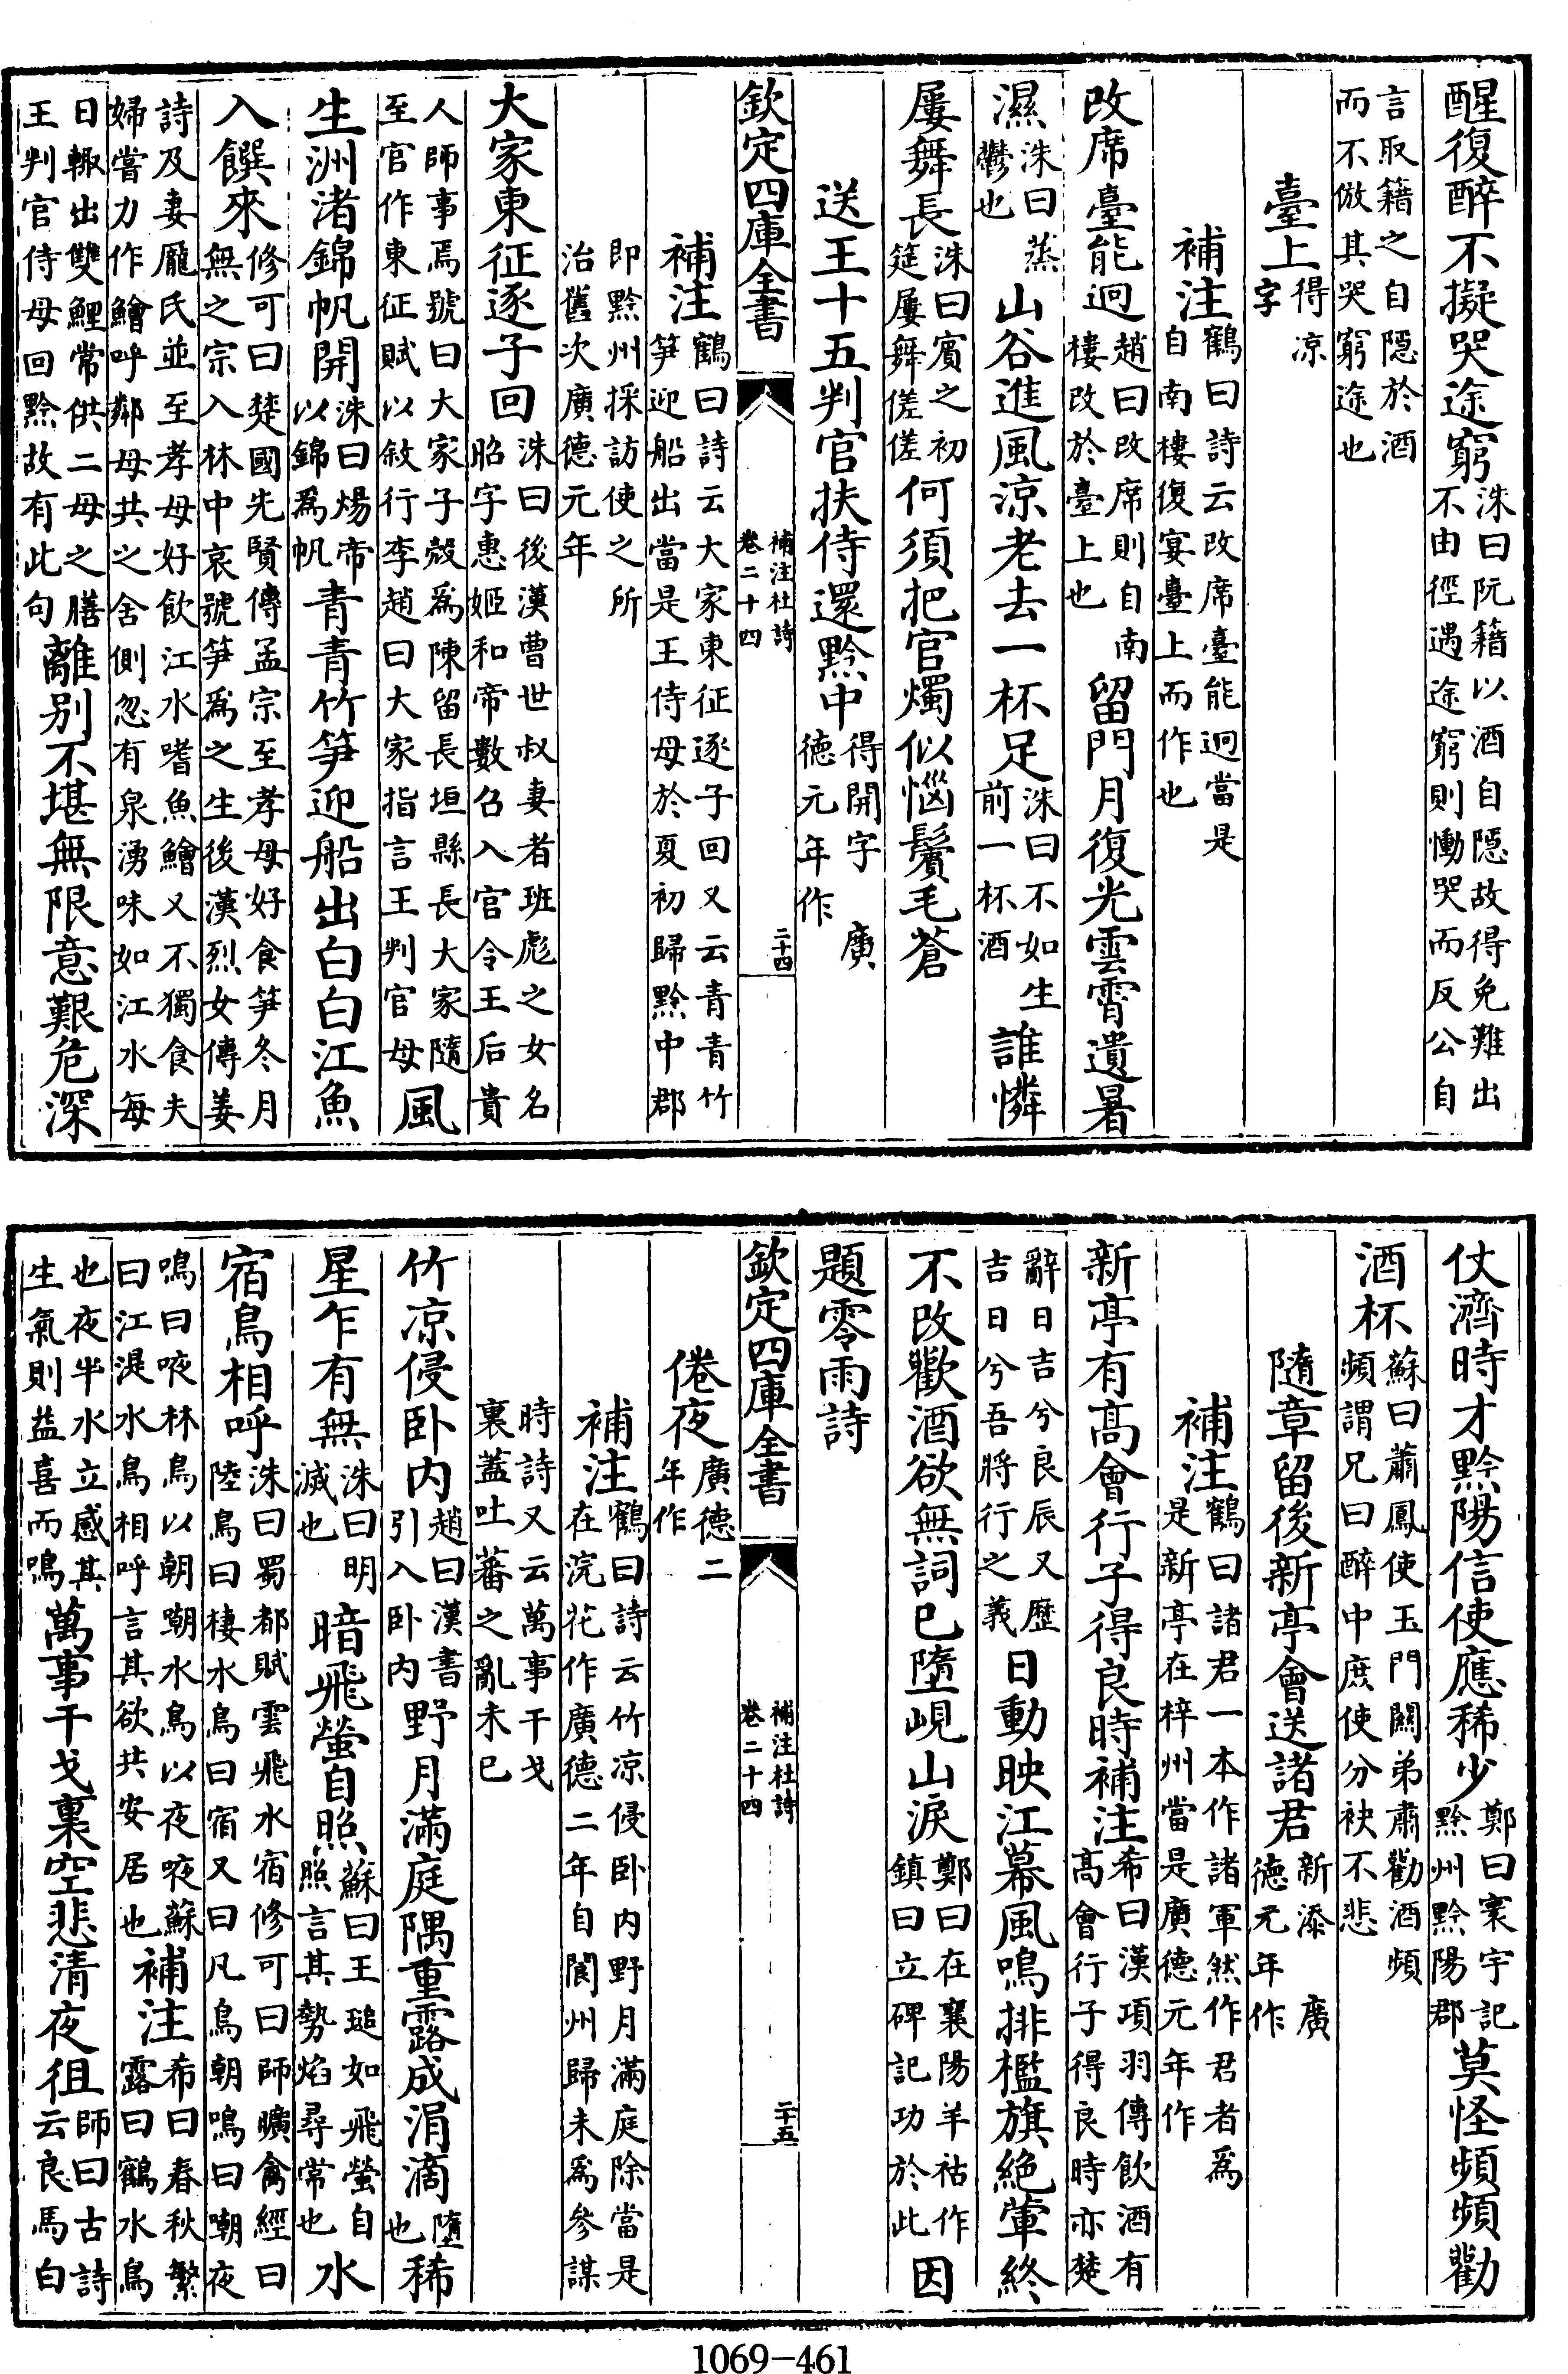 醒復醉不擬哭途窮洙曰阮籍以酒自隠故得免難出不由徑遇途窮則慟哭而反公自
言取籍之自隠於酒而不倣其哭窮途也
臺上得凉字
補注鶴曰詩云改席臺能迥當是自南樓復宴臺上而作也
改席臺能迥趙曰改席則自南樓改於臺上也留門月復光雲霄遺暑
濕洙曰蒸鬱也山谷進風凉老去一杯足洙曰不如生前一杯酒誰憐
屢舞長洙曰賓之初筵屢舞傞傞何須把官燭似惱鬢毛蒼
送王十五判官扶侍還黔中得開字 廣德元年作
欽定四庫全書 補注杜詩卷二十四 二十四
補注鶴曰詩云大家東征逐子回又云青青竹笋迎船出當是王侍母於夏初歸黔中郡
即黔州採訪使之所治舊次廣德元年
大家東征逐子回洙曰後漢曹世叔妻者班彪之女名昭字惠姬和帝數召入官令王后貴
人師事焉號曰大家子殻為陳留長垣縣長大家隨至官作東征賦以敘行李趙曰大家指言王判官母風
生洲渚錦帆開洙曰煬帝以錦為帆青青竹笋迎船出白白江魚
入饌來修可曰楚國先賢傳孟宗至孝母好食笋冬月無之宗入林中哀號笋為之生後漢烈女傳姜
詩及妻龎氏並至孝母好飲江水嗜魚鱠又不獨食夫婦嘗力作鱠呼鄰母共之舍側忽有泉湧味如江水每
日輙出雙鯉常供二母之膳王判官侍母回黔故有此句離别不堪無限意艱危深
仗濟時才黔陽信使應稀少鄭曰寰宇記黔州黔陽郡莫怪頻頻勸
酒杯蘇曰蕭鳳使玉門闕弟肅勸酒頻頻謂兄曰醉中庶使分袂不悲
隨章留後新亭會送諸君新添 廣德元年作
補注鶴曰諸君一本作諸軍然作君者為是新亭在梓州當是廣德元年作
新亭有高會行子得良時補注希曰漢項羽傳飲酒有高會行子得良時亦楚
辭日吉兮良辰又歴吉日兮吾將行之義日動映江幕風鳴排檻旗絶葷終
不改歡酒欲無詞已墮峴山淚鄭曰在襄陽羊祜作鎮曰立碑記功於此因
題零雨詩
欽定四庫全書 補注杜詩卷二十四 二十五
倦夜廣德二年作
補注鶴曰詩云竹凉侵卧内野月滿庭除當是在浣花作廣德二年自閬州歸未為參謀
時詩又云萬事干戈裏蓋吐蕃之亂未已
竹凉侵卧内趙曰漢書引入卧内野月滿庭隅重露成涓滴墮也稀
星乍有無洙曰明滅也暗飛螢自照蘇曰王瑫如飛螢自照言其勢焰尋常也水
宿鳥相呼洙曰蜀都賦雲飛水宿修可曰師曠禽經曰陸鳥曰棲水鳥曰宿又曰凡鳥朝鳴曰嘲夜
鳴曰㖡林鳥以朝嘲水鳥以夜㖡蘇曰江湜水鳥相呼言其欲共安居也補注希曰春秋繁露曰鶴水鳥
也夜半水立感其生氣則益喜而鳴萬事干戈裏空悲清夜徂師曰古詩云良馬白
1069-461